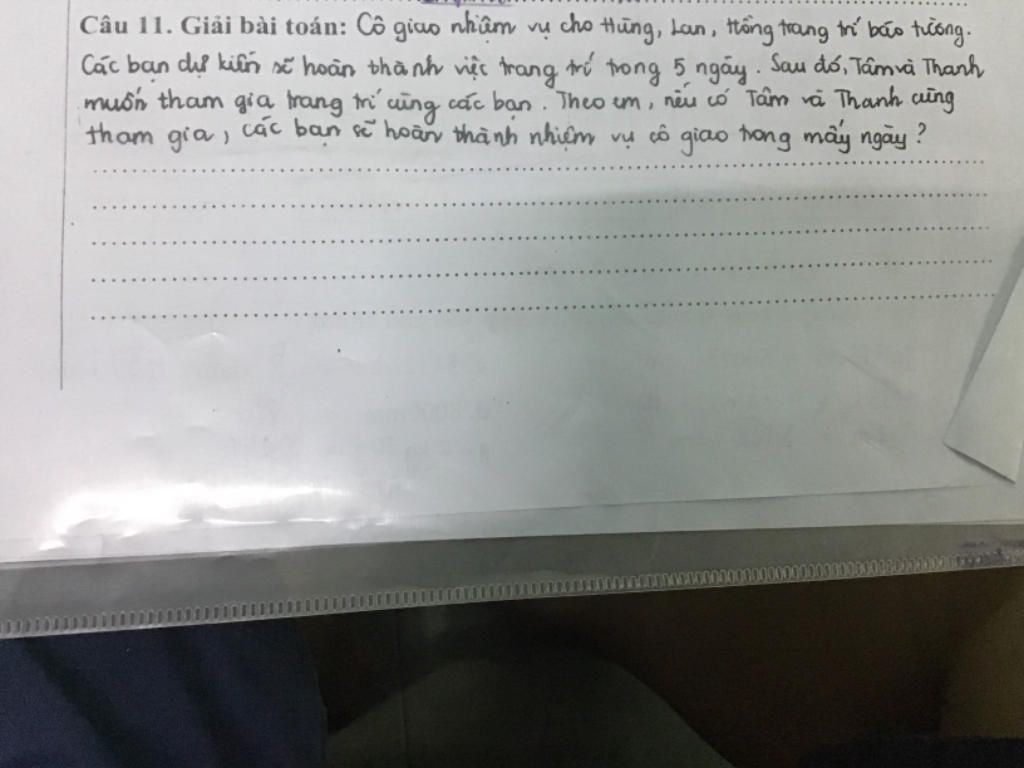 Câu 11. Giải bài toán: Cô giao nhiệm vụ cho Hùng, Lan, Hồng trang trí báo tường.
Các bạn dự kiến sẽ hoàn thành việc trang trí trong 5 ngày. Sau đó, Tâm và Thanh
muốn tham gia trang trí cùng các bạn. Theo em, nếu có Tâm và Thanh cùng
tham gia, các bạn sẽ hoàn thành nhiệm vụ cô giao trong mấy ngày?